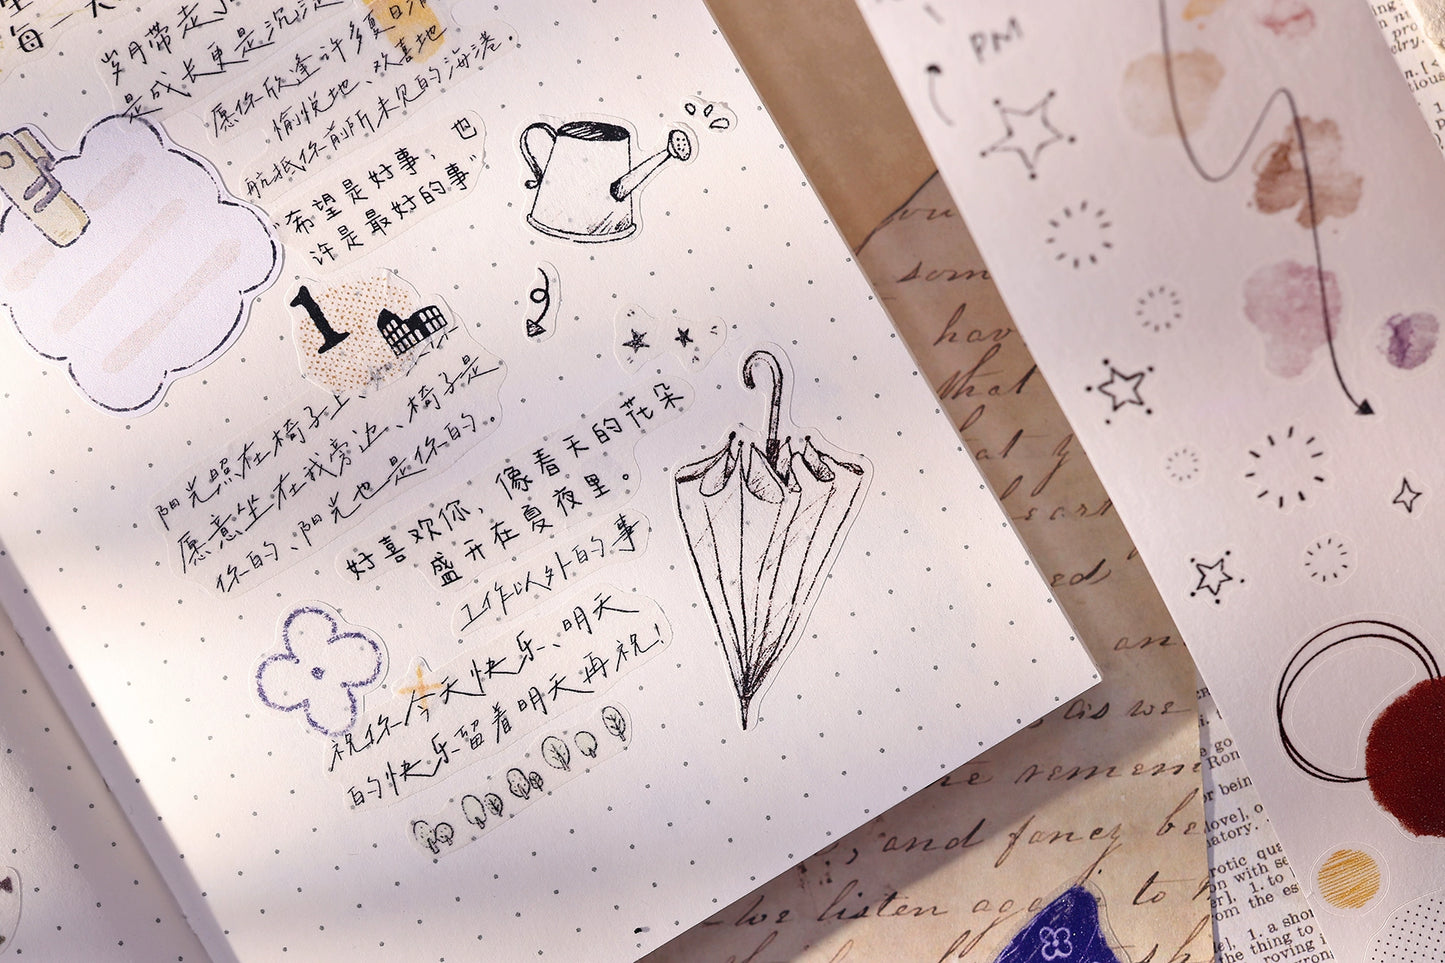 每一天
岁月带走
是成长更是沉淀
愿你欣逢许多夏日
愉悦地、欢喜地
航抵你前所未见的海港.
希望是好事, 也
许是最好的事
1
阳光照在椅子上、
愿意坐在我旁边、椅子是
你的、阳光也是你的.
好喜欢你, 像春天的花朵
盛开在夏夜里。
工作以外的事
祝你今天快乐、明天
的快乐留着明天再祝!
PM
you
som
hav
that
at y
heart
ed
an
as we
remem
, and fancy be
we listen again to
go
Rom
or being
love], o
natory.
rotic qua
on with se
er]. 1. to
om the es
1. a shor
the thing to
roving i